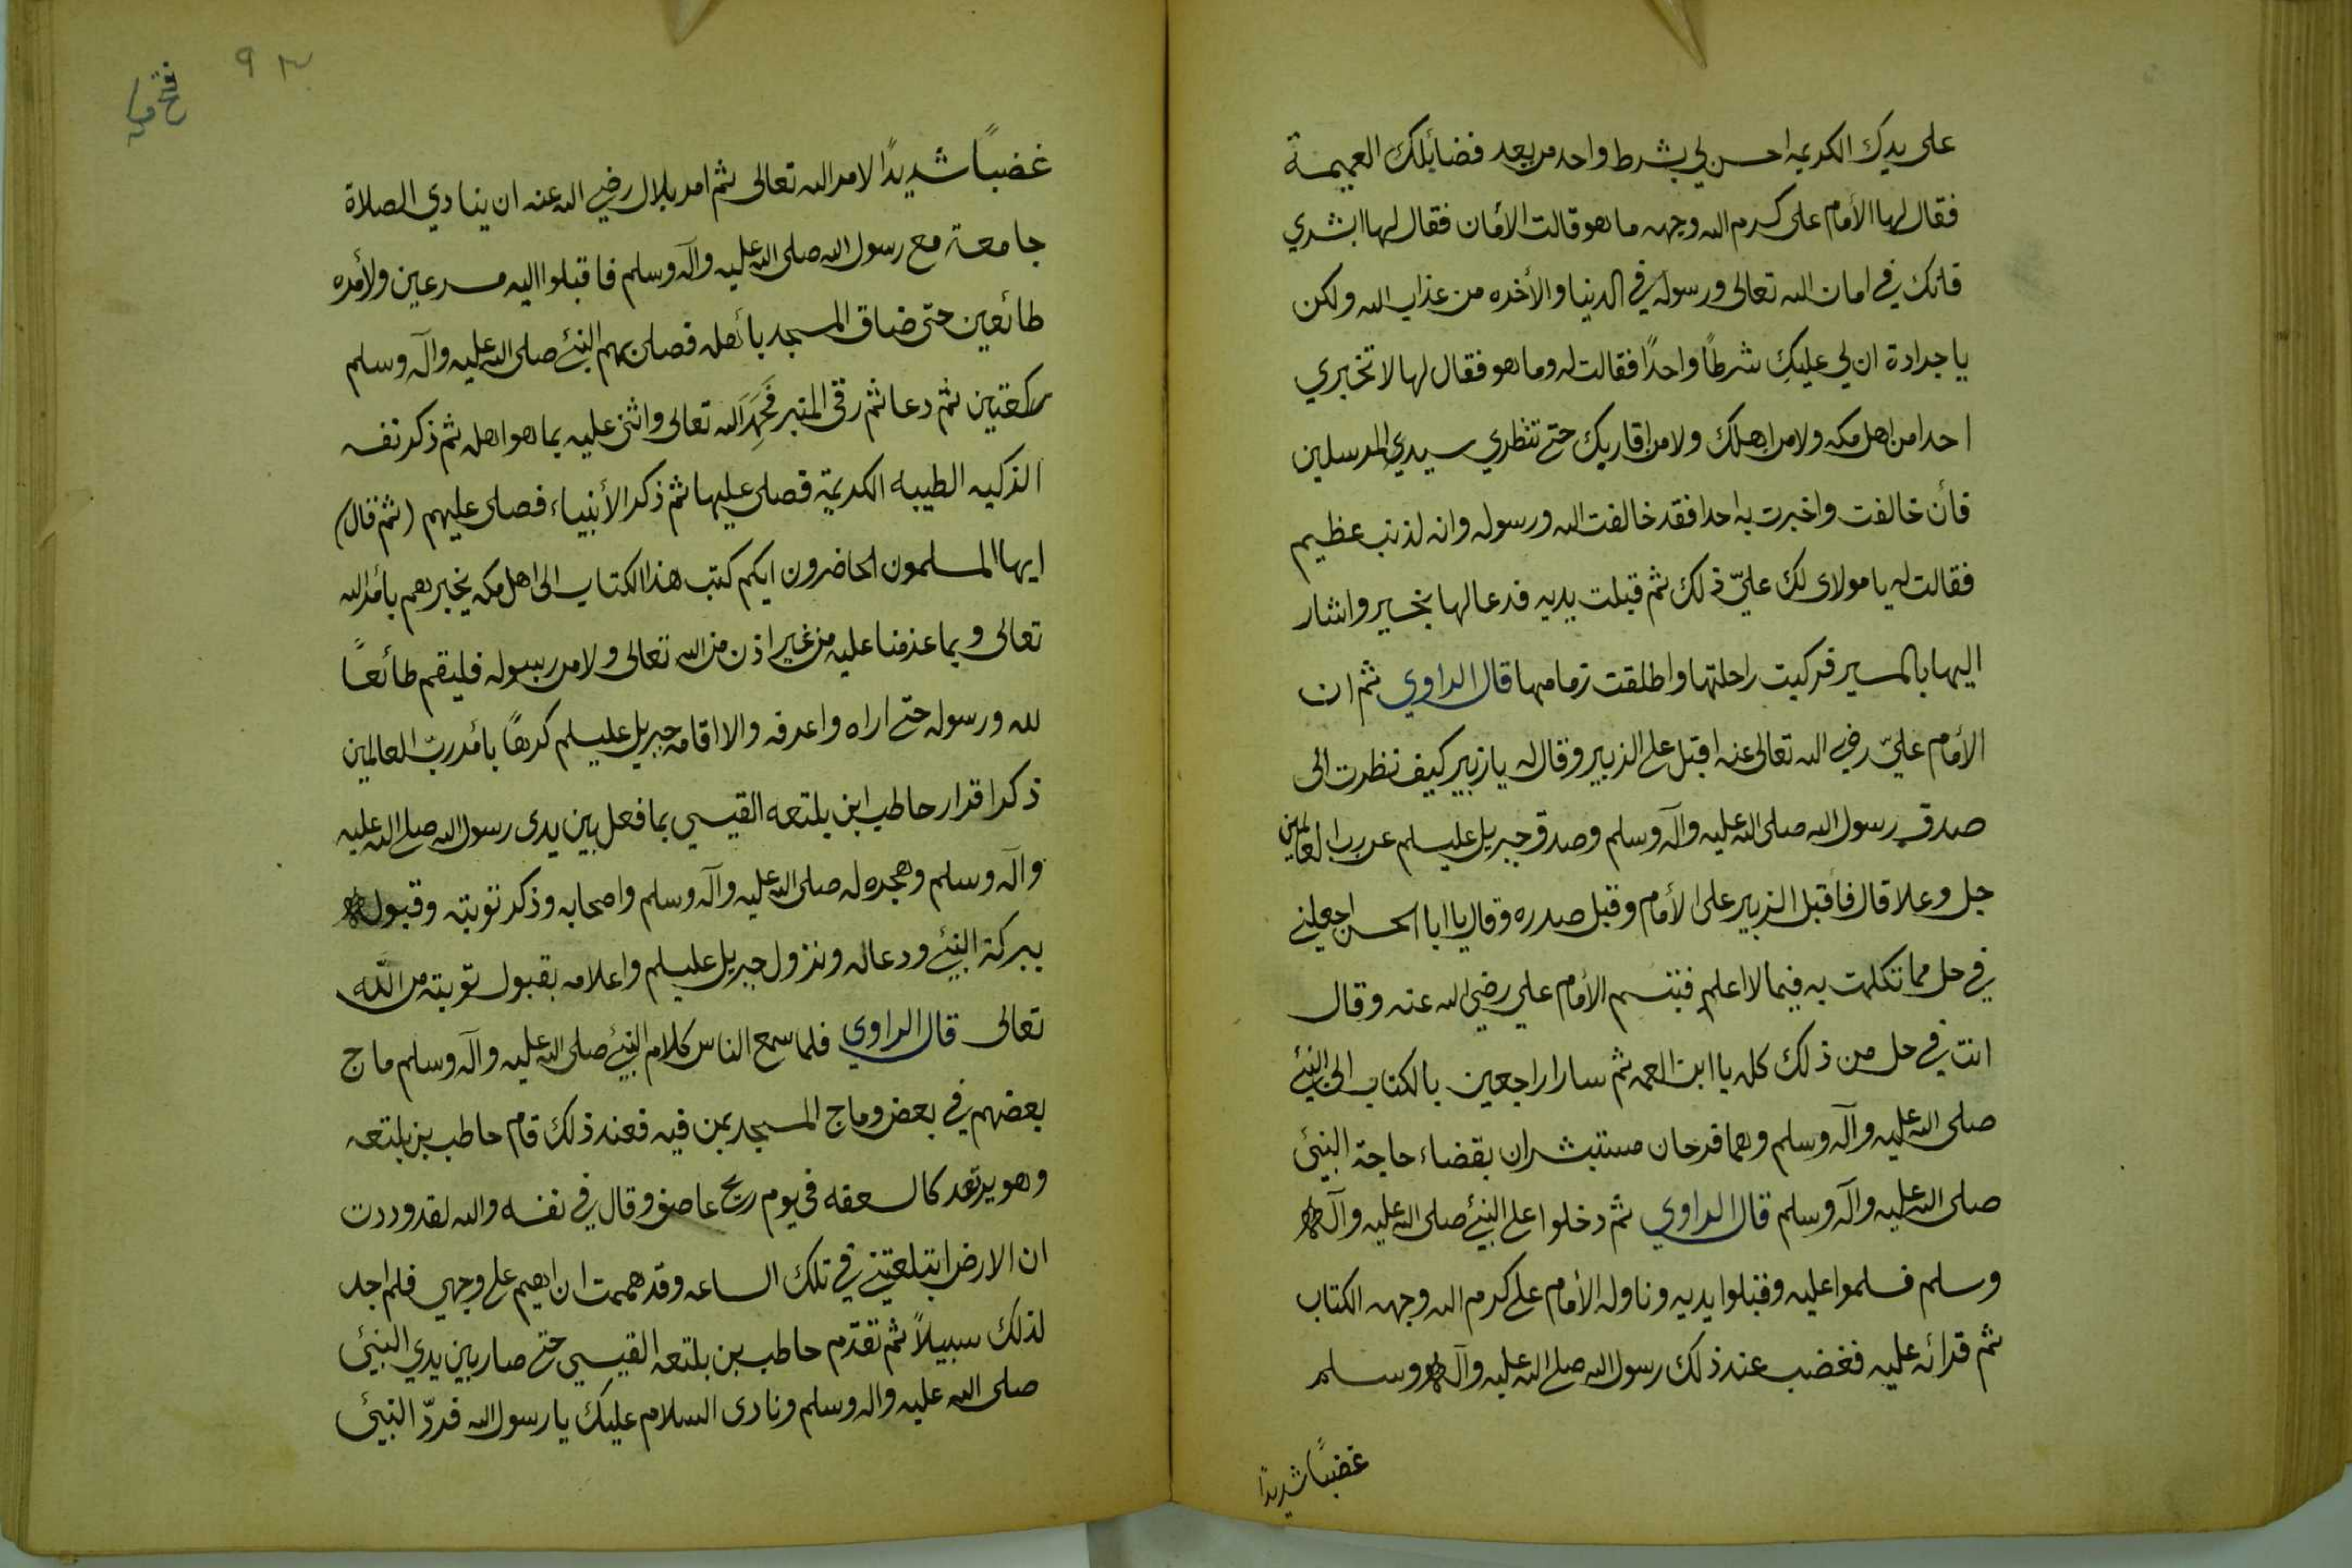 على يدك الكريمه احسن لي بشرط واحد من بعد فضائلك العميمة
فقال لها الأمام على كرم الله وجهه ما هو قالت الأمان فقال لها ابشري
فانك في امان الله تعالى ورسوله في الدنيا والأخره من عذاب الله ولكن
يا جرادة ان لي عليكِ شرطًا واحدًا فقالت له وما هو فقال لها لا تخبري
احدا من اهل مكه ولا من اهلك ولا من اقاربك حتى تنظري سيدي المرسلين
فأن خالفت واخبرت به احدا فقد خالفت الله ورسوله وانه لذنب عظيم
فقالت له يا مولاى لك عليّ ذلك ثم قبلت يديه فدعا لها بخير واشار
اليها بالمسير فركبت راحلتها واطلقت زمامها قال الراوي ثم ان
الأمام عليّ رضي الله تعالى عنه اقبل على الزبير وقال له يا زبير كيف نظرت الى
صدق رسول الله صلى الله عليه وآله وسلم وصدق جبريل عليسلم عن رب العالمين
جل وعلا قال فأقبل الزبير على الأمام وقبل صدره وقال يا ابا الحسن اجعلني
في حل مما تكلمت به فيما لا اعلم فتبسم الأمام علي رضي الله عنه وقال
انت في حل من ذلك كله يا ابن العمه ثم سارا راجعين بالكتاب الى النبئ
صلى الله عليه وآله وسلم وهما فرحان مستبشران بقضاء حاجة النبئ
صلى الله عليه وآله وسلم قال الراوي ثم دخلوا على النبئ صلى الله عليه وآله
وسلم فسلموا عليه وقبلوا يديه وناوله الأمام على كرم الله وجهه الكتاب
ثم قرائه عليه فغضب عند ذلك رسول الله صلى الله عليه وآله وسلم
غضبًا شديدًا
٩٣
فتح مكه
غضبًا شديدًا لامر الله تعالى ثم امر بلال رضي الله عنه ان ينادي الصلاة
جامعة مع رسول الله صلى الله عليه وآله وسلم فاقبلوا اليه مسرعين ولأمره
طائعين حتى ضاق المسجد بأهله فصلى بهم النبئ صلى الله عليه وآله وسلم
ركعتين ثم دعا ثم رقى المنبر فحَمِدَ الله تعالى واثنى عليه بما هو اهله ثم ذكر نفسه
الذكيه الطيبه الكريمة فصلى عليها ثم ذكر الأنبياء فصلى عليهم (ثم قال)
ايها المسلمون الحاضرون ايكم كتب هذا الكتاب الى اهل مكه يخبرهم بأمر الله
تعالى وبما عزمنا عليه من غير اذن من الله تعالى ولا من رسوله فليقم طائعًا
لله ورسوله حتى اراه واعرفه والا اقامه جبريل عليسلم كرهًا بأمر ربّ العالمين
ذكر اقرار حاطب ابن بلتعه القيسي بما فعل بين يدى رسول الله صلى الله عليه
وآله وسلم وهجره له صلى الله عليه وآله وسلم واصحابه وذكر توبته وقبوله
ببركة النبئ ودعاله ونزول جبريل عليسلم واعلامه بقبول توبته من الله
تعالى قال الراوي فلما سمع الناس كلام النبئ صلى الله عليه وآله وسلم ماج
بعضهم في بعض وماج المسجد بمن فيه فعند ذلك قام حاطب بن بلتعه
وهو يرتعد كالسعفه فى يوم ريح عاصف وقال في نفسه والله لقد وددت
ان الارض ابتلعتني في تلك الساعه وقد هممت ان اهيم على وجهي فلم اجد
لذلك سبيلاً ثم تقدّم حاطب بن بلتعه القيسي حتى صار بين يدي النبئ
صلى الله عليه واله وسلم ونادى السلام عليك يا رسول الله فردّ النبئ